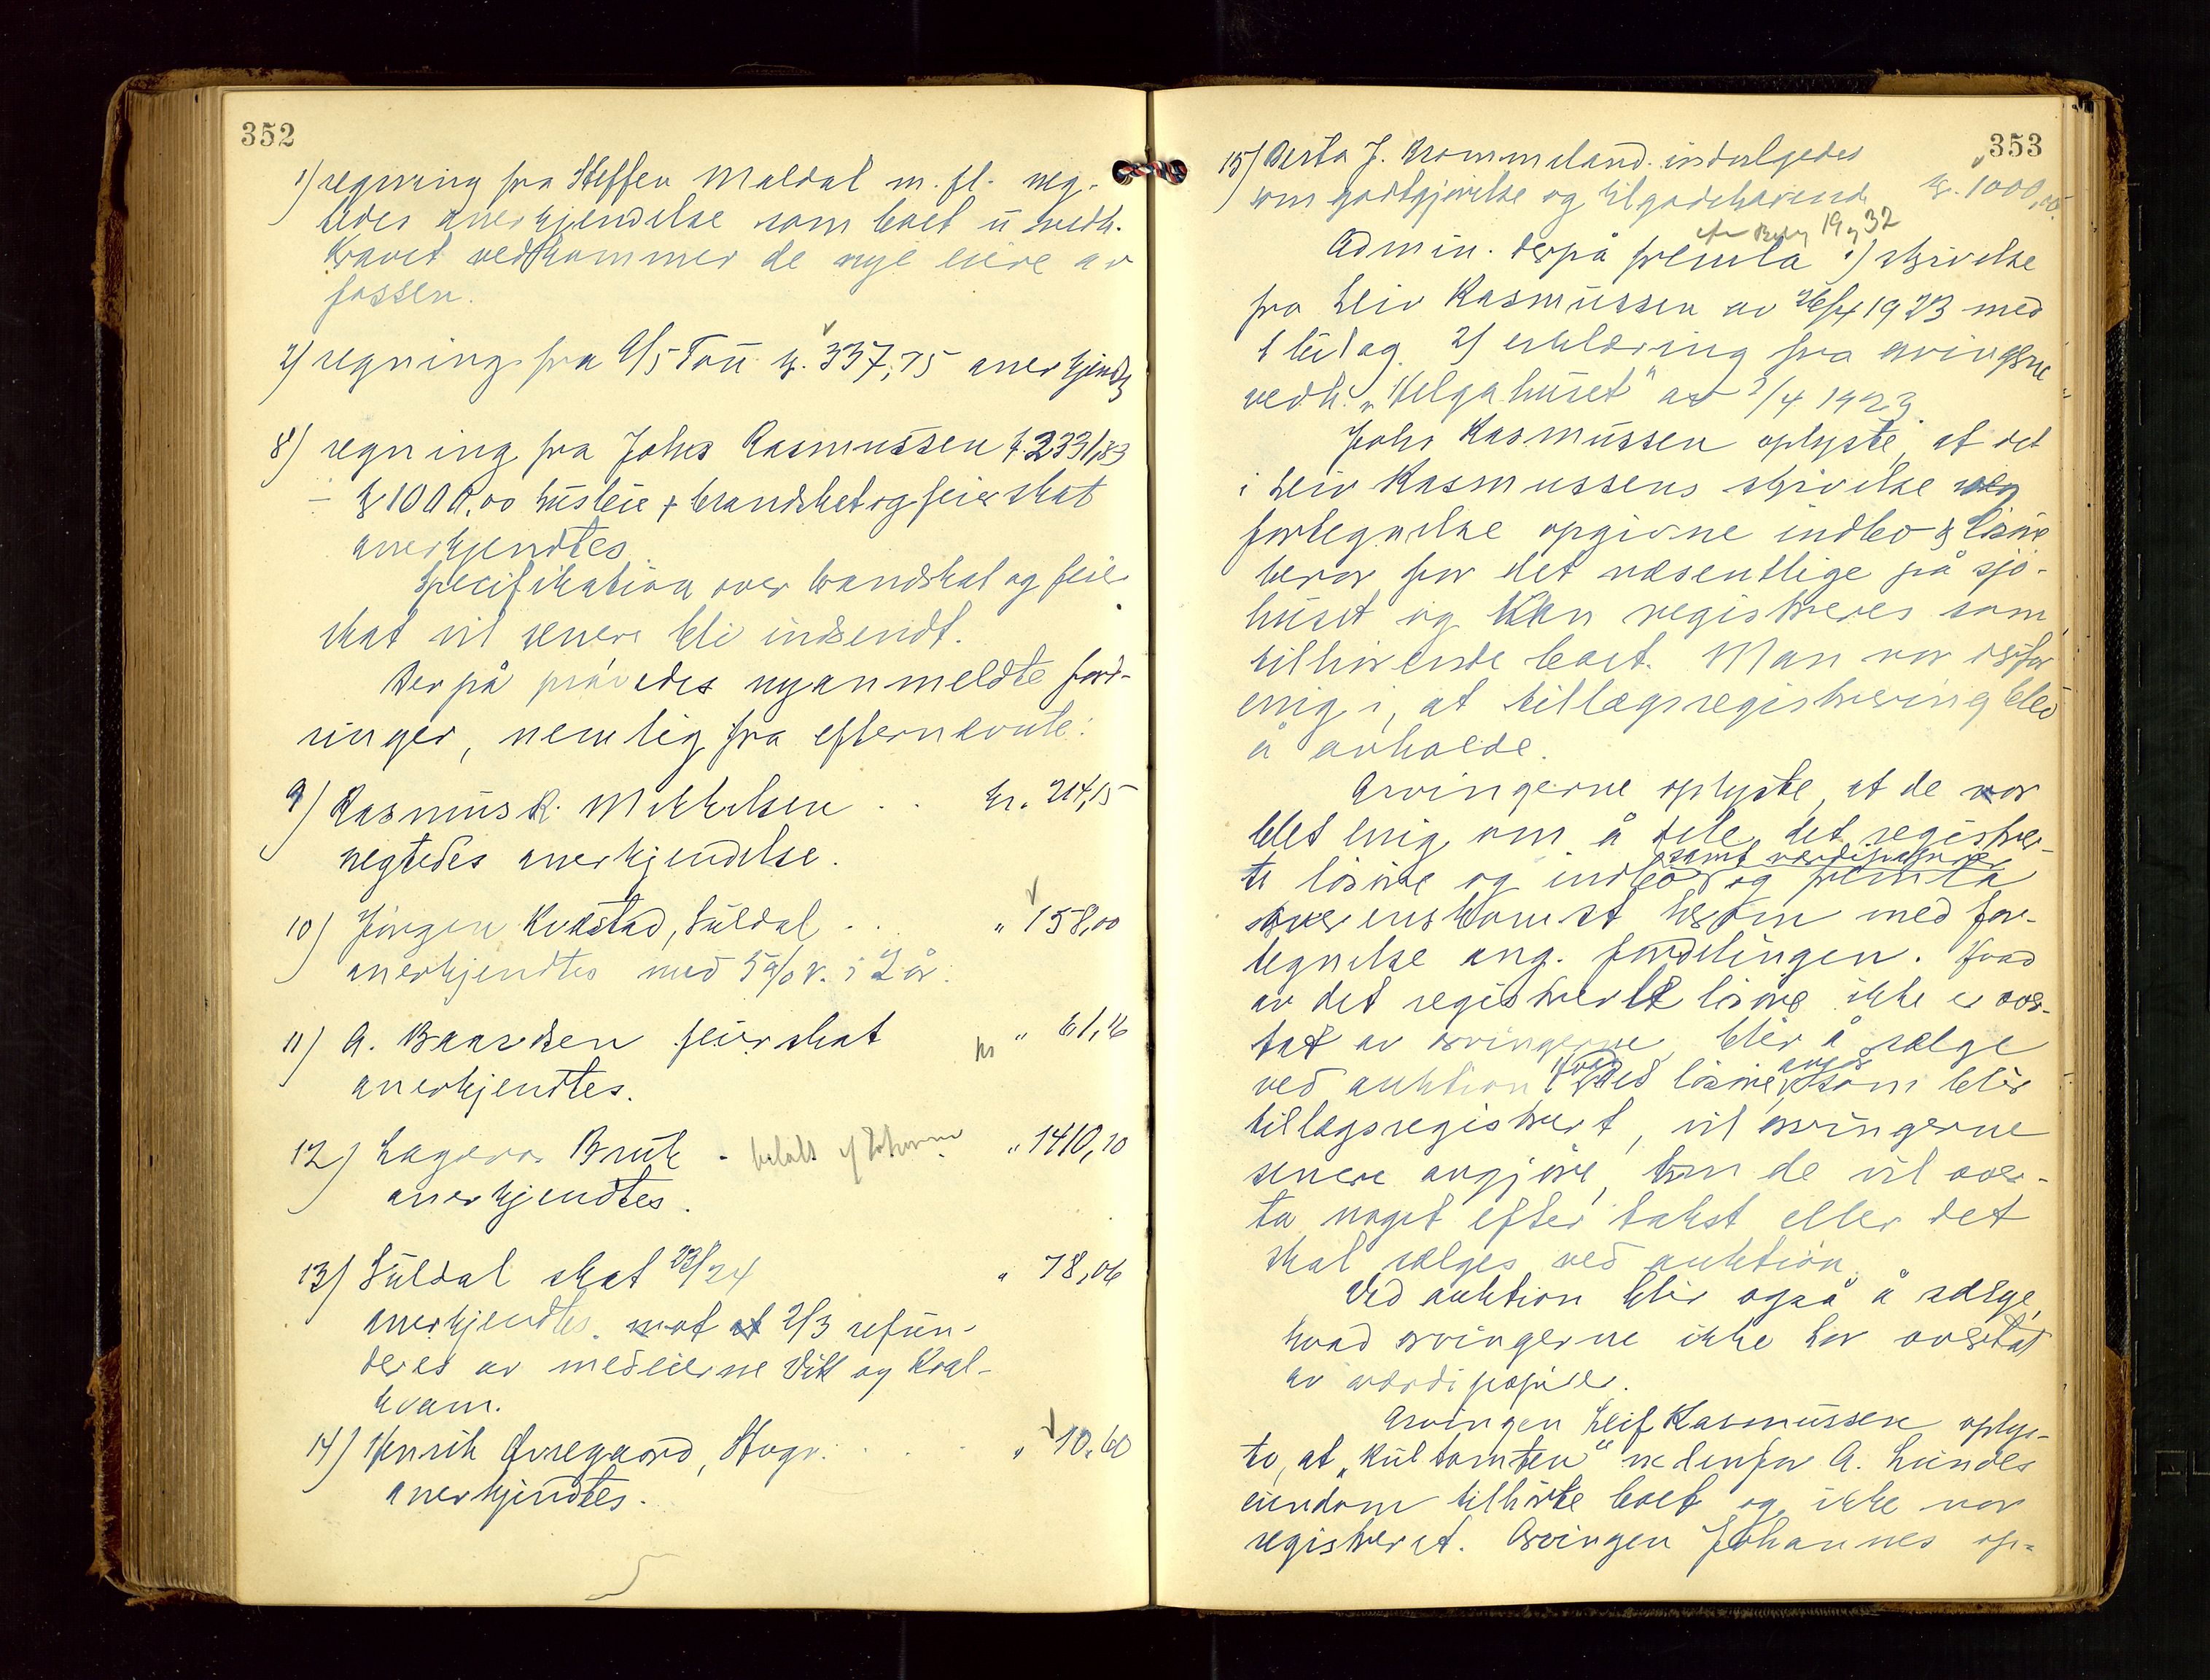 352
1) regning fra Steffen Maldal m. fl. neg-
tedes anerkjendelse som boet uvedk.
Kravet vedkommer de nye eiere av
fossen.
2) regning fra A/S Tou kr. 337,75 anerkjendtes
8) regning fra Johs Rasmussen kr. 2331,83
÷ kr 1000,00 husleie + brandskat og feieskat
anerkjendtes.
Specifikation over brandskat og feie-
skat vil senere bli indsendt.
Derpå prøvedes nyanmeldte ford-
ringer, nemlig fra efternævnte:
9) Rasmus R. Mikkelsen . . kr. 214,15
negtedes anerkjendelse.
10) Jørgen Kvæstad, Suldal . . " 158,00
anerkjendtes med 5% r. i 2 år.
11) A. Baardsen feierskat " 61,16
anerkjendtes.
12) Lagerva Bruk - betalt af " 1410,10
anerkjendtes.
13) Suldal skat 23/24 " 78,06
anerkjendtes. mot at 2/3 refun-
deres av medeierne Vik og Kval-
kvam.
14) Henrik Øvregaard, Stvgr. . . . " 10,60
anerkjendtes.
353
15) Berta J. Brommeland indvilgedes
som godtgjørelse og tilgodehavende kr. 1000,00
19 32
Admin. derpå fremla 1) skrivelse
fra Leiv Rasmussen av 26/4 1923 med
1 bilag. 2) erklæring fra arvingerne
vedk. "Helgahuset" av 3/4 1923.
Johs Rasmussen oplyste, at det
i Leiv Rasmussens skrivelse
fortegnelse opgivne indbo & løsøre
beror for det væsentlige på sjø-
huset og kan registreres som
tilhørende boet. Man var derfor
enig i, at tillægsregistrering blev
å avholde.
Arvingerne oplyste, at de var
blet enig om å dele det registrer-
samt værdipapirer
te løsøre og indbo og fremla
overenskomst herom med for-
tegnelse ang. fordelingen. Hvad
av det registrerte løsøre ikke er over-
tat av arvingerne blir å sælge
ved auktion. Hvad det løsøre angår, som blir
tillægsregistrert, vil arvingerne
senere avgjøre, om de vil over-
ta noget efter takst eller det
skal sælges ved auktion.
Ved auktion blir også å sælge,
hvad arvingerne ikke har overtat
av værdipapirer.
Arvingen Leif Rasmussen oplys-
te, at "Kultomten" nedenfor A. Lundes
eiendom tilhørte boet og ikke var
registreret. Arvingen Johannes op-